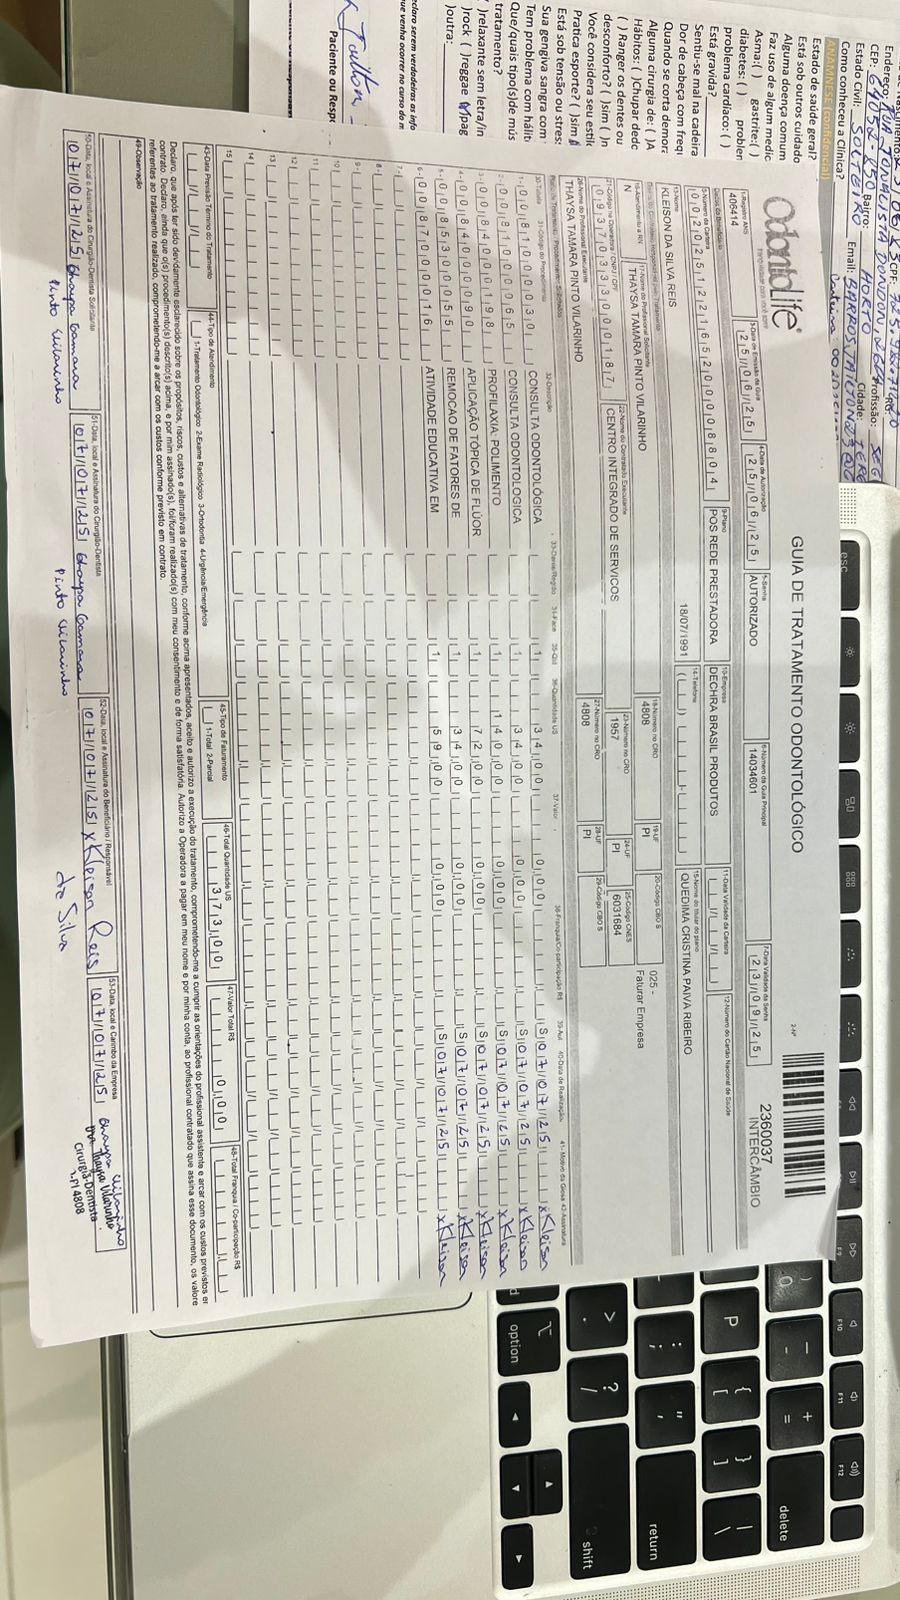 OdontoLife®
GUIA DE TRATAMENTO ODONTOLÓGICO
2-Nº
2360037
INTERCÂMBIO
1-Registro ANS
406414
3-Data de Emissão da Guia
25/06/25
4-Data de Autorização
25/06/25
5-Senha
AUTORIZADO
6-Número da Guia Principal
14034601
7-Data Validade da Senha
23/09/25
8-Número da Carteira
9-Plano
POS REDE PRESTADORA
10-Empresa
DECHRA BRASIL PRODUTOS
11-Data Validade da Carteira
12-Número do Cartão Nacional de Saúde
13-Nome
KLEISON DA SILVA REIS
18/07/1991
14-Telefone
15-Nome do titular do plano
QUEDIMA CRISTINA PAIVA RIBEIRO
16-Atendimento a RN
N
17-Nome do Profissional Solicitante
THAYSA TAMARA PINTO VILARINHO
18-Número no CRO
4808
19-UF
PI
20-Código CBO S
025 -
Faturar Empresa
21-Código na Operadora / CNPJ / CPF
09370333000187
22-Nome do Contratado Executante
CENTRO INTEGRADO DE SERVICOS
23-Número no CRO
1957
24-UF
PI
25-Código CNES
6031684
26-Nome do Profissional Executante
THAYSA TAMARA PINTO VILARINHO
27-Número no CRO
4808
28-UF
PI
29-Código CBO S
30-Tabela 31-Código do Procedimento 32-Descrição 33-Dente/Região 34-Face 35-Qtd 36-Quantidade US 37-Valor 38-Franquia/Co-participação R$ 39-Aut 40-Data de Realização 41-Motivo da Glosa 42-Assinatura
1- 00 81000030 CONSULTA ODONTOLÓGICA 1 34,00 0,00 S 07/07/25 x Kleison
2- 00 81000065 CONSULTA ODONTOLOGICA 1 34,00 0,00 S 07/07/25 x Kleison
3- 00 84000198 PROFILAXIA: POLIMENTO 1 140,00 0,00 S 07/07/25 x Kleison
4- 00 84000090 APLICAÇÃO TÓPICA DE FLÚOR 1 72,00 0,00 S 07/07/25 x Kleison
5- 00 85300055 REMOCAO DE FATORES DE 1 34,00 0,00 S 07/07/25 x Kleison
6- 00 87000016 ATIVIDADE EDUCATIVA EM 1 59,00 0,00 S 07/07/25 x Kleison
7-
8-
9-
10
11
12
13
14
15
43-Data Previsão Término do Tratamento
44-Tipo de Atendimento
1-Tratamento Odontológico 2-Exame Radiológico 3-Ortodontia 4-Urgência/Emergência
45-Tipo de Faturamento
1-Total 2-Parcial
46-Total Quantidade US
373,00
47-Valor Total R$
0,00
48-Total Franquia / Co-participação R$
Declaro, que após ter sido devidamente esclarecido sobre os propósitos, riscos, custos e alternativas de tratamento, conforme acima apresentados, aceito e autorizo a execução do tratamento, comprometendo-me a cumprir as orientações do profissional assistente e arcar com os custos previstos em
contrato. Declaro, ainda que o(s) procedimento(s) descrito(s) acima, e por mim assinado(s), foi/foram realizado(s) com meu consentimento e de forma satisfatória. Autorizo a Operadora a pagar em meu nome e por minha conta, ao profissional contratado que assina esse documento, os valores
referentes ao tratamento realizado, comprometendo-me a arcar com os custos conforme previsto em contrato.
49-Observação
50-Data, local e Assinatura do Cirurgião-Dentista Solicitante
07/07/25 Thaysa Tamara
Pinto Vilarinho
51-Data, local e Assinatura do Cirurgião-Dentista
07/07/25 Thaysa Tamara
Pinto Vilarinho
52-Data, local e Assinatura do Beneficiário / Responsável
07/07/25 x Kleison Reis
da Silva
53-Data, local e Carimbo da Empresa
07/07/25 Thaysa Vilarinho
Dra. Thaysa Vilarinho
Cirurgiã-Dentista
PI 4808
Endereço: RUA JORNALISTA DONDON, 2664
CEP: 64052-850 Bairro: HORTO Cidade:
Estado Civil: SOLTEIRO Email:
Profissão:
CPF:
Como conheceu a Clínica?
ANAMNESE (confidencial)
Estado de saúde geral?
Está sob outros cuidado
Alguma doença comum
Faz uso de algum medic
Asma:( ) gastrite:( )
diabetes: ( ) problem
problema cardíaco: ( )
Está gravida?
Sentiu-se mal na cadeira
Dor de cabeça com frequ
Quando se corta demora
Alguma cirurgia de: ( )A
Hábitos: ( )Chupar dedo
( ) Ranger os dentes ou
desconforto? ( )sim ( )n
Você considera seu estilo
Pratica esporte? ( )sim
Está sob tensão ou stres
Sua gengiva sangra com
Tem problema com hálit
Que/quais tipo(s)de mús
tratamento?
( )relaxante sem letra/in
( )rock ( )reggae ( )pag
( )outra:
eclaro serem verdadeiras as info
ue venha ocorrer no curso do m
Paciente ou Resp
esc
F9
F10
F11
F12
delete
return
shift
option
P